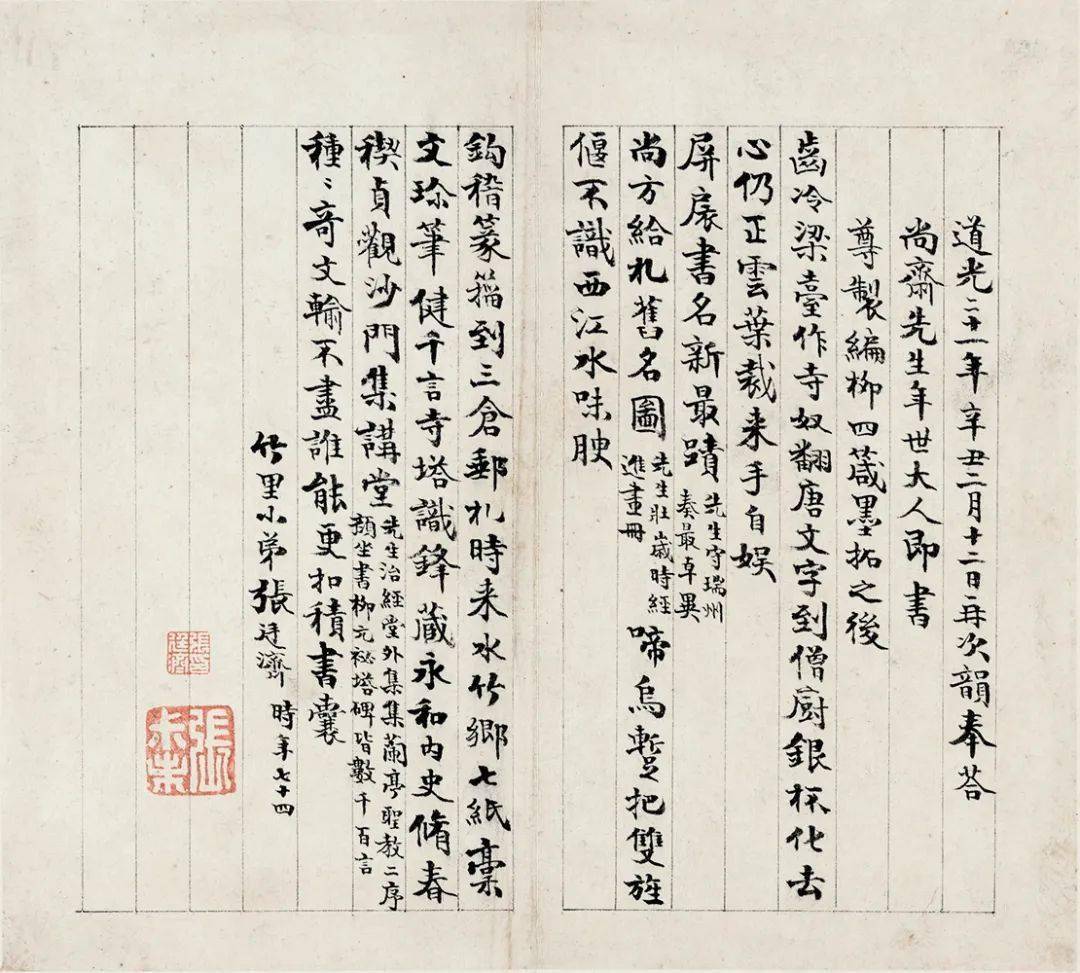 道光二十一年辛丑二月十二日再次韻奉荅
尚齋先生年世大人即書
尊製編柳四箴墨拓之後
齒冷梁臺作寺奴翻唐文字到僧厨銀杯化去
心仍正雲葉裁来手自娱
屏扆書名新最蹟先生守瑞州奏最卓異
尚方給札舊名圖先生壯歲時經進畫冊啼烏蹔把雙旌
偃不識西江水味腴
鈎稽篆籀到三倉郵札時来水竹鄉七紙稾
文珎筆健千言寺塔識鋒藏永和内史脩春
稧貞觀沙門集講堂先生治經堂外集集蘭亭聖教二序顔坐書柳元祕塔碑皆數千百言
種〻奇文輸不盡誰能更扣積書囊
竹里小弟張廷濟時年七十四
張廷濟
張尗未